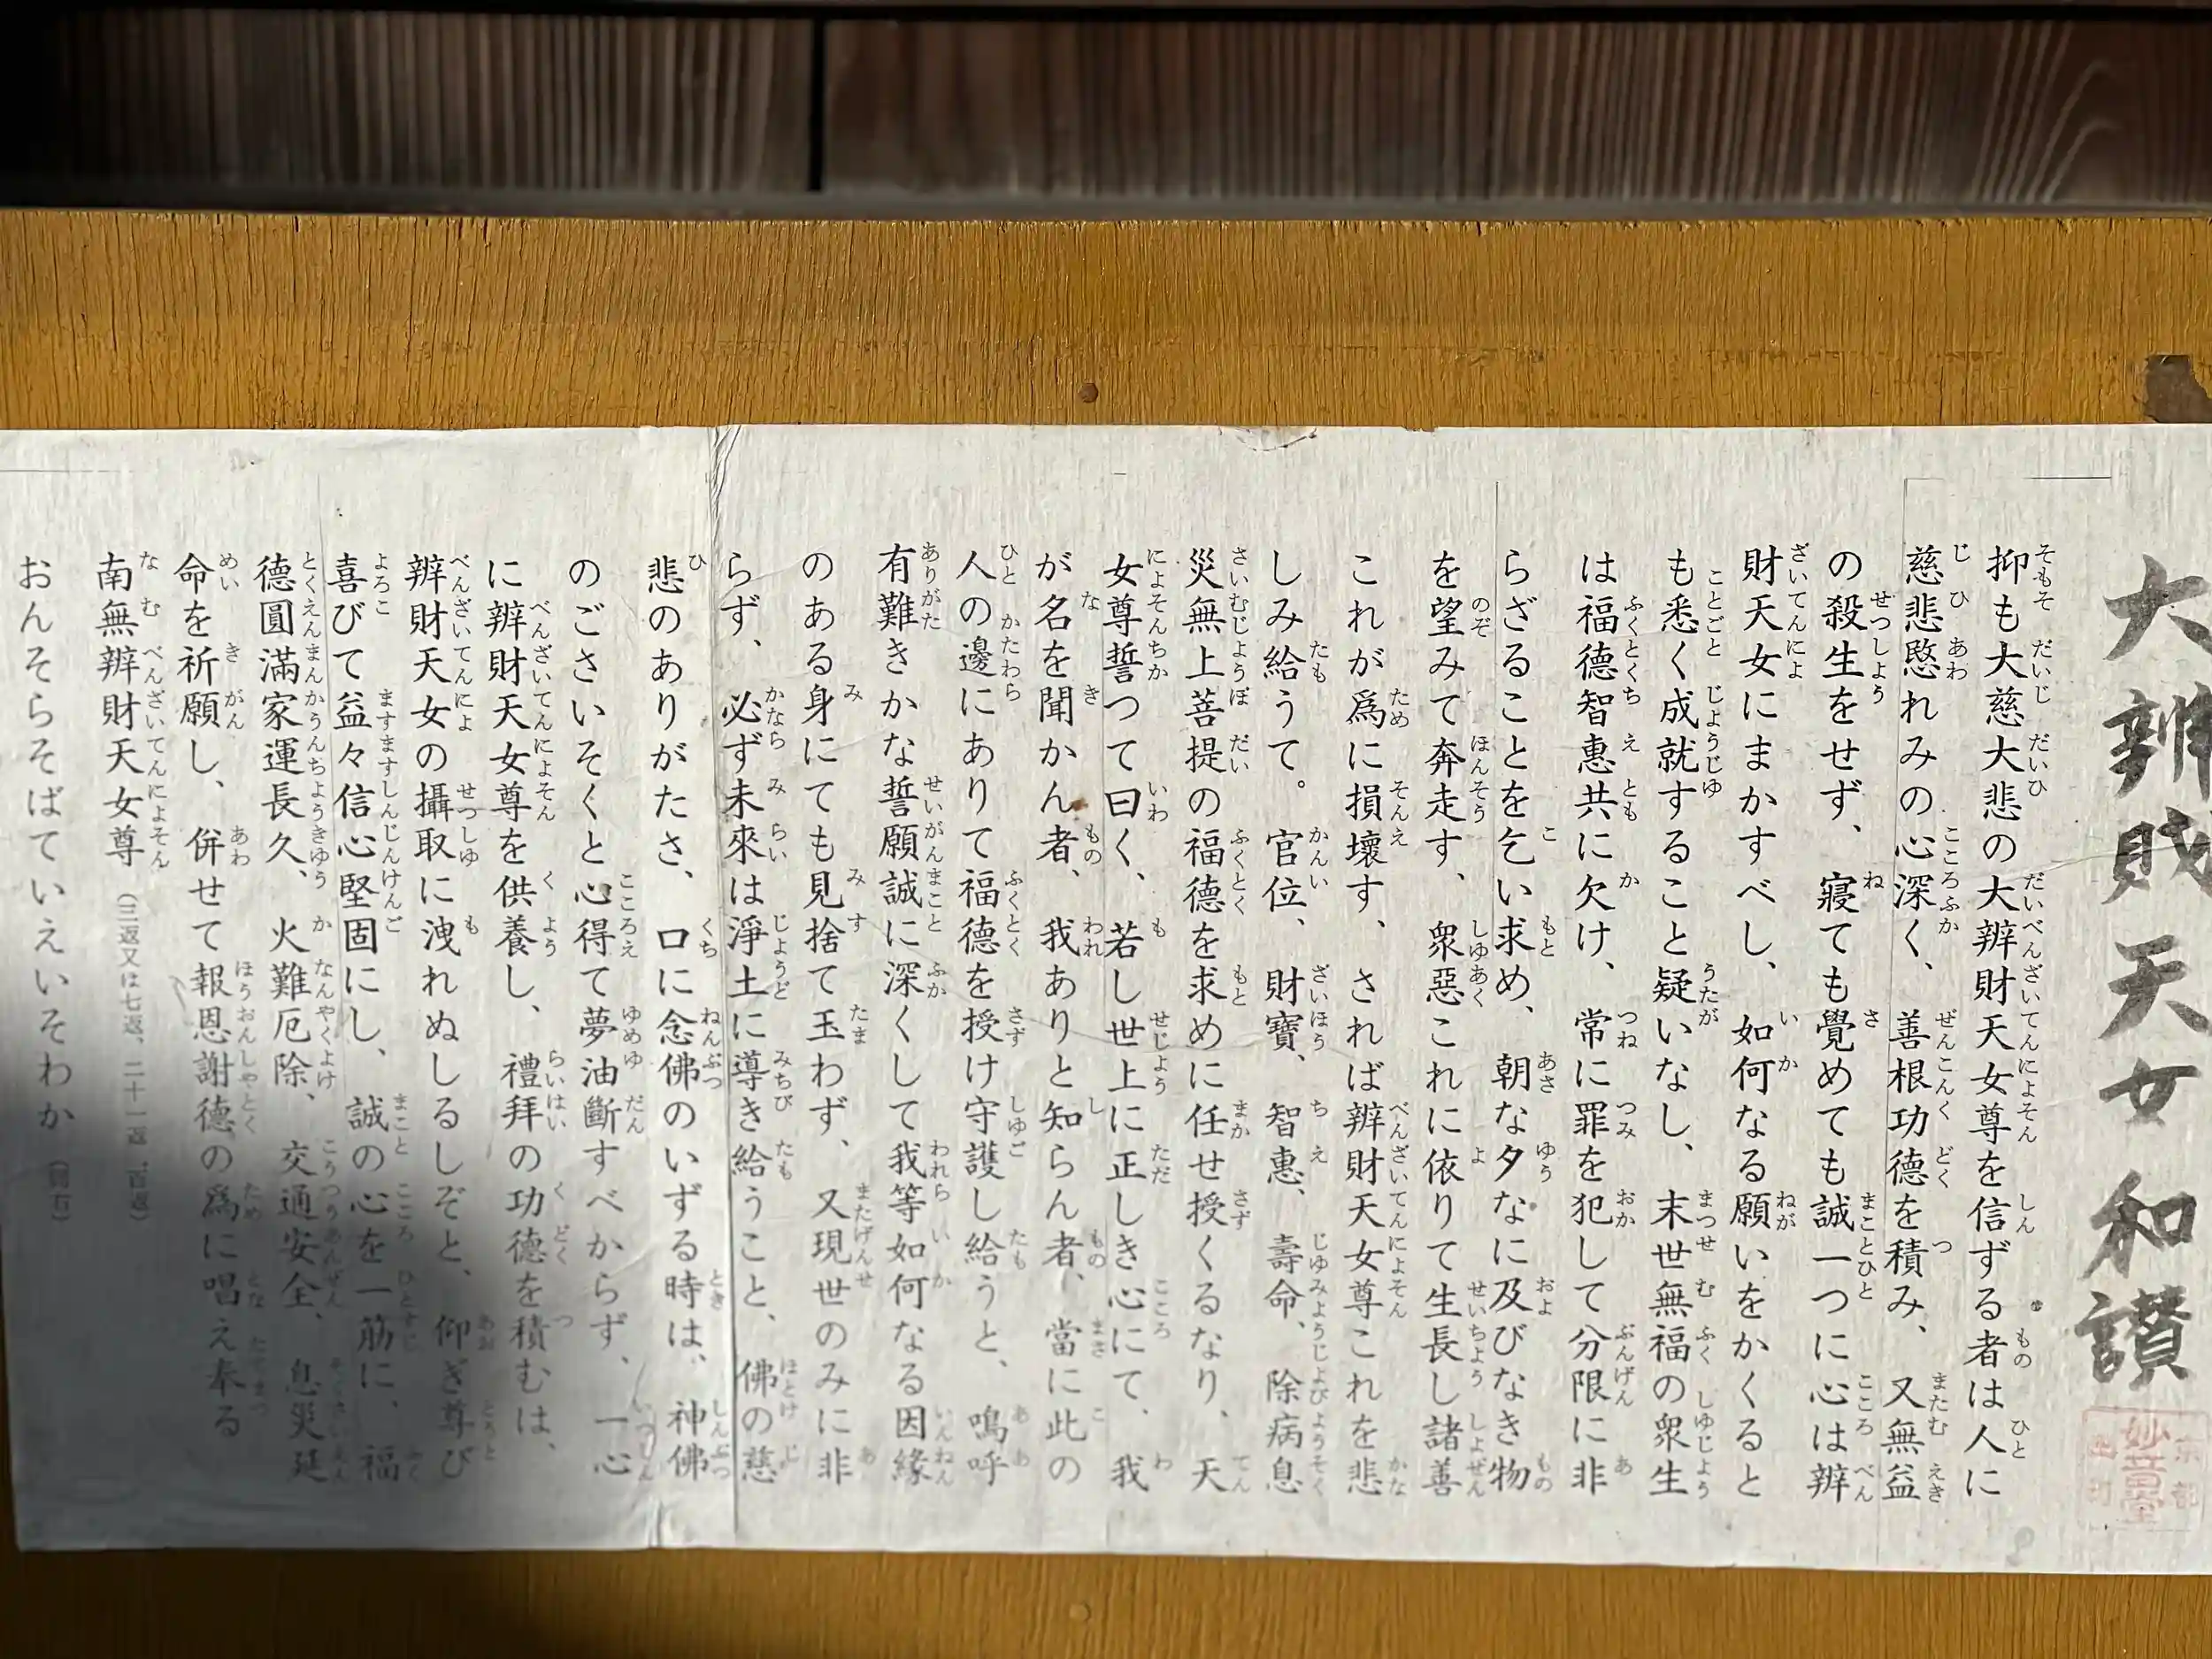 大辨財天女和讃
妙音堂
抑も大慈大悲の大辨財天女尊を信ずる者は人に
慈悲愍れみの心深く、善根功德を積み、又無益
の殺生をせず、寢ても覺めても誠一つに心は辨
財天女にまかすべし、如何なる願いをかくると
も悉く成就すること疑いなし、末世無福の衆生
は福德智惠共に欠け、常に罪を犯して分限に非
らざることを乞い求め、朝な夕なに及びなき物
を望みて奔走す、衆惡これに依りて生長し諸善
これが爲に損壞す、されば辨財天女尊これを悲
しみ給うて。官位、財寶、智惠、壽命、除病息
災無上菩提の福德を求めに任せ授くるなり、天
女尊誓つて曰く、若し世上に正しき心にて、我
が名を聞かん者、我ありと知らん者、當に此の
人の邊にありて福德を授け守護し給うと、嗚呼
有難きかな誓願誠に深くして我等如何なる因緣
のある身にても見捨て玉わず、又現世のみに非
らず、必ず未來は淨土に導き給うこと、佛の慈
悲のありがたさ、口に念佛のいずる時は、神佛
のごさいそくと心得て夢油斷すべからず、一心
に辨財天女尊を供養し、禮拜の功德を積むは、
辨財天女の攝取に洩れぬしるしぞと、仰ぎ尊び
喜びて益々信心堅固にし、誠の心を一筋に、福
德圓滿家運長久、火難厄除、交通安全、息災延
命を祈願し、併せて報恩謝德の爲に唱え奉る
南無辨財天女尊（三返又は七返、二十一返、百返）
おんそらそばていえいそわか